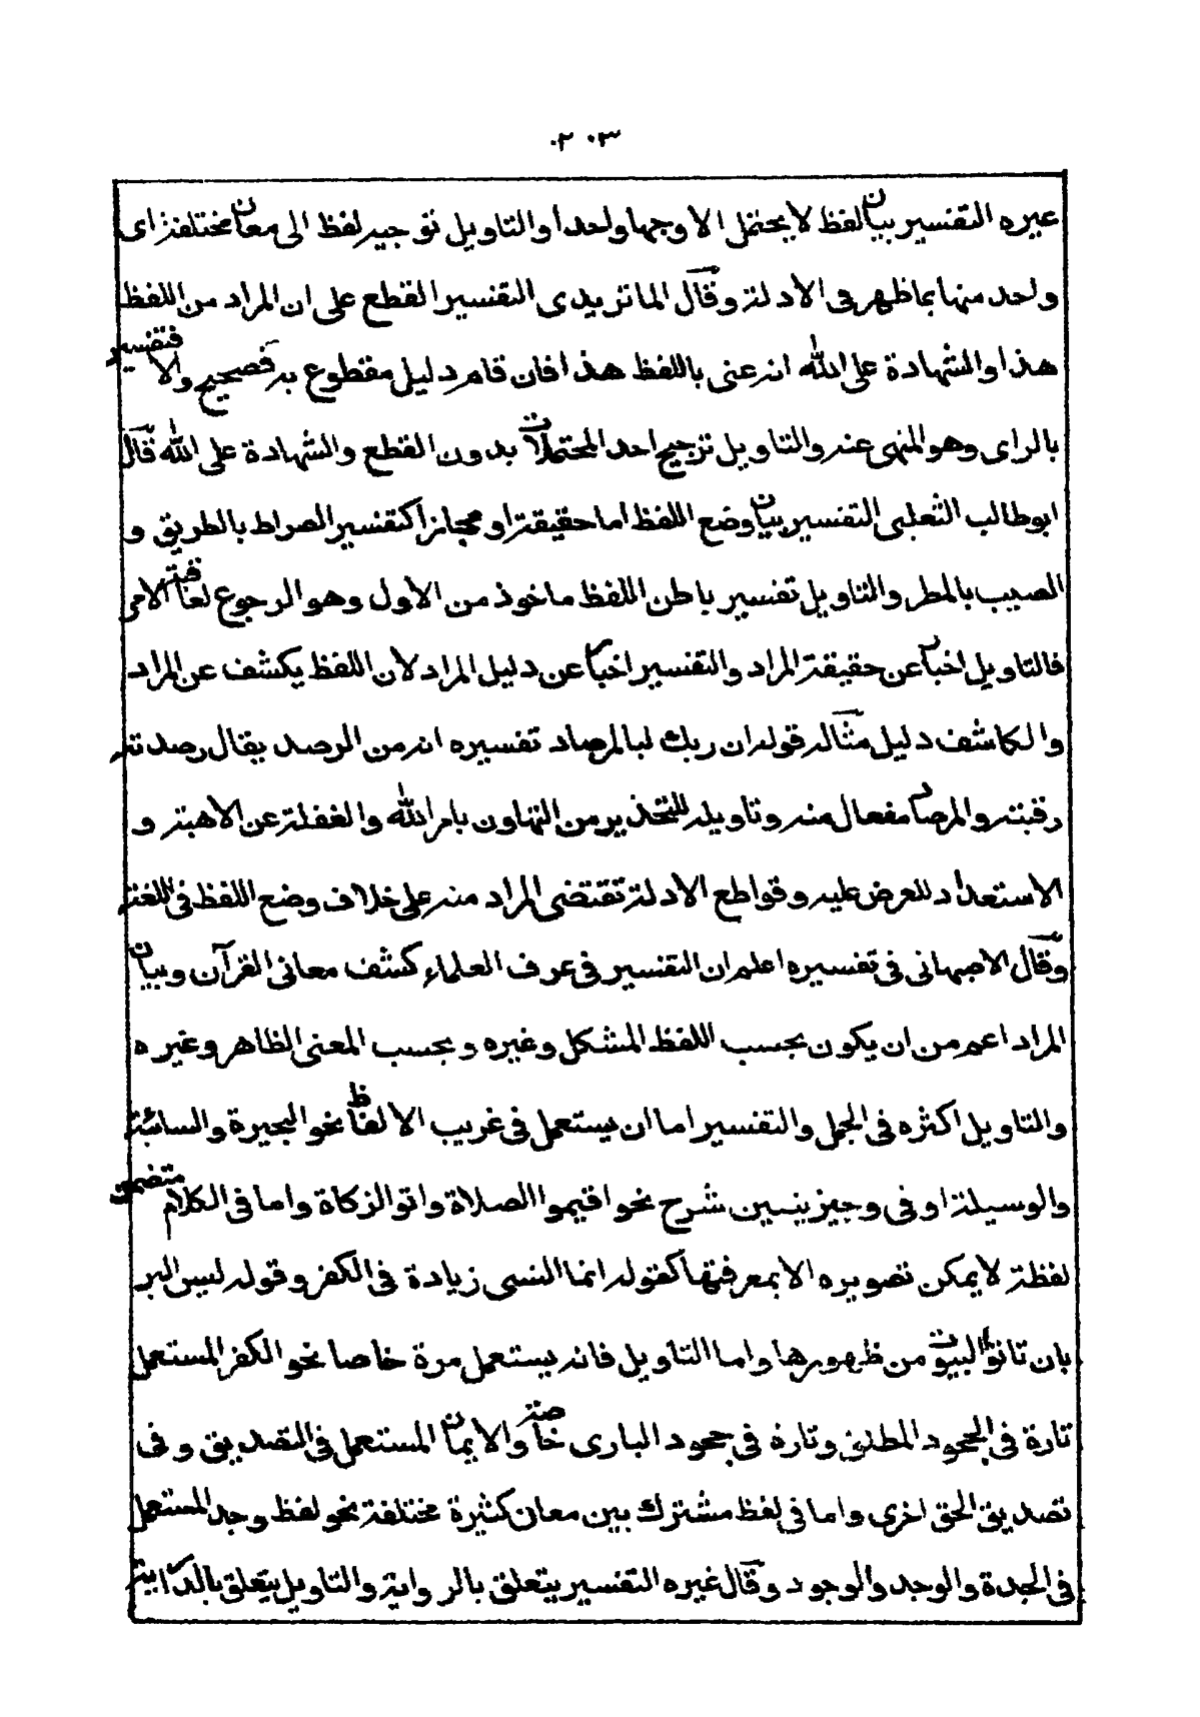 ٢٠٣
غيره التفسير بيان لفظ لا يحتمل الا وجها واحدا والتاويل توجيه لفظ الى معان مختلفة اى
واحد منها بما ظهر فى الادلة وقال الماتريدى التفسير القطع على ان المراد من اللفظ
هذا والشهادة على الله انه عنى باللفظ هذا فان قام دليل مقطوع به فصحيح والا فتفسير
بالراى وهو المنهى عنه والتاويل ترجيح احد المحتملات بدون القطع والشهادة على الله قال
ابوطالب الثعلبى التفسير بيان وضع اللفظ اما حقيقة او مجازا كتفسير الصراط بالطريق و
الصيب بالمطر والتاويل تفسير باطن اللفظ ماخوذ من الاول وهو الرجوع لعاقبة الامر
فالتاويل اخبار عن حقيقة المراد والتفسير اخبار عن دليل المراد لان اللفظ يكشف عن المراد
والكاشف دليل مثاله قوله ان ربك لبالمرصاد تفسيره انه من الرصد يقال رصدته
رقبته والمرصاد مفعال منه وتاويله للتحذير من التهاون بامر الله والغفلة عن الاهبة و
الاستعداد للعرض عليه وقواطع الادلة تقتضى المراد منه على خلاف وضع اللفظ فى اللغة
وقال الاصبهانى فى تفسيره اعلم ان التفسير فى عرف العلماء كشف معانى القرآن وبيان
المراد اعم من ان يكون بحسب اللفظ المشكل وغيره وبحسب المعنى الظاهر وغيره
والتاويل اكثره فى الجمل والتفسير اما ان يستعمل فى غريب الالفاظ نحو البحيرة والسائبة
والوسيلة او فى وجيز يتبين شرح نحو اقيموا الصلاة واتو الزكاة واما فى الكلام متضمن
لفظة لا يمكن تصويره الا بمعرفتها كقوله انما النسى زيادة فى الكفر وقوله ليس البر
بان تاتوا البيوت من ظهورها واما التاويل فانه يستعمل مرة خاصا نحو الكفر المستعمل
تارة فى الجحود المطلق وتارة فى جحود البارى خاصة والايمان المستعمل فى التصديق وفى
تصديق الحق اخرى واما فى لفظ مشترك بين معان كثيرة مختلفة نحو لفظ وجد المستعمل
فى الجدة والوجد والوجود وقال غيره التفسير يتعلق بالرواية والتاويل يتعلق بالدراية